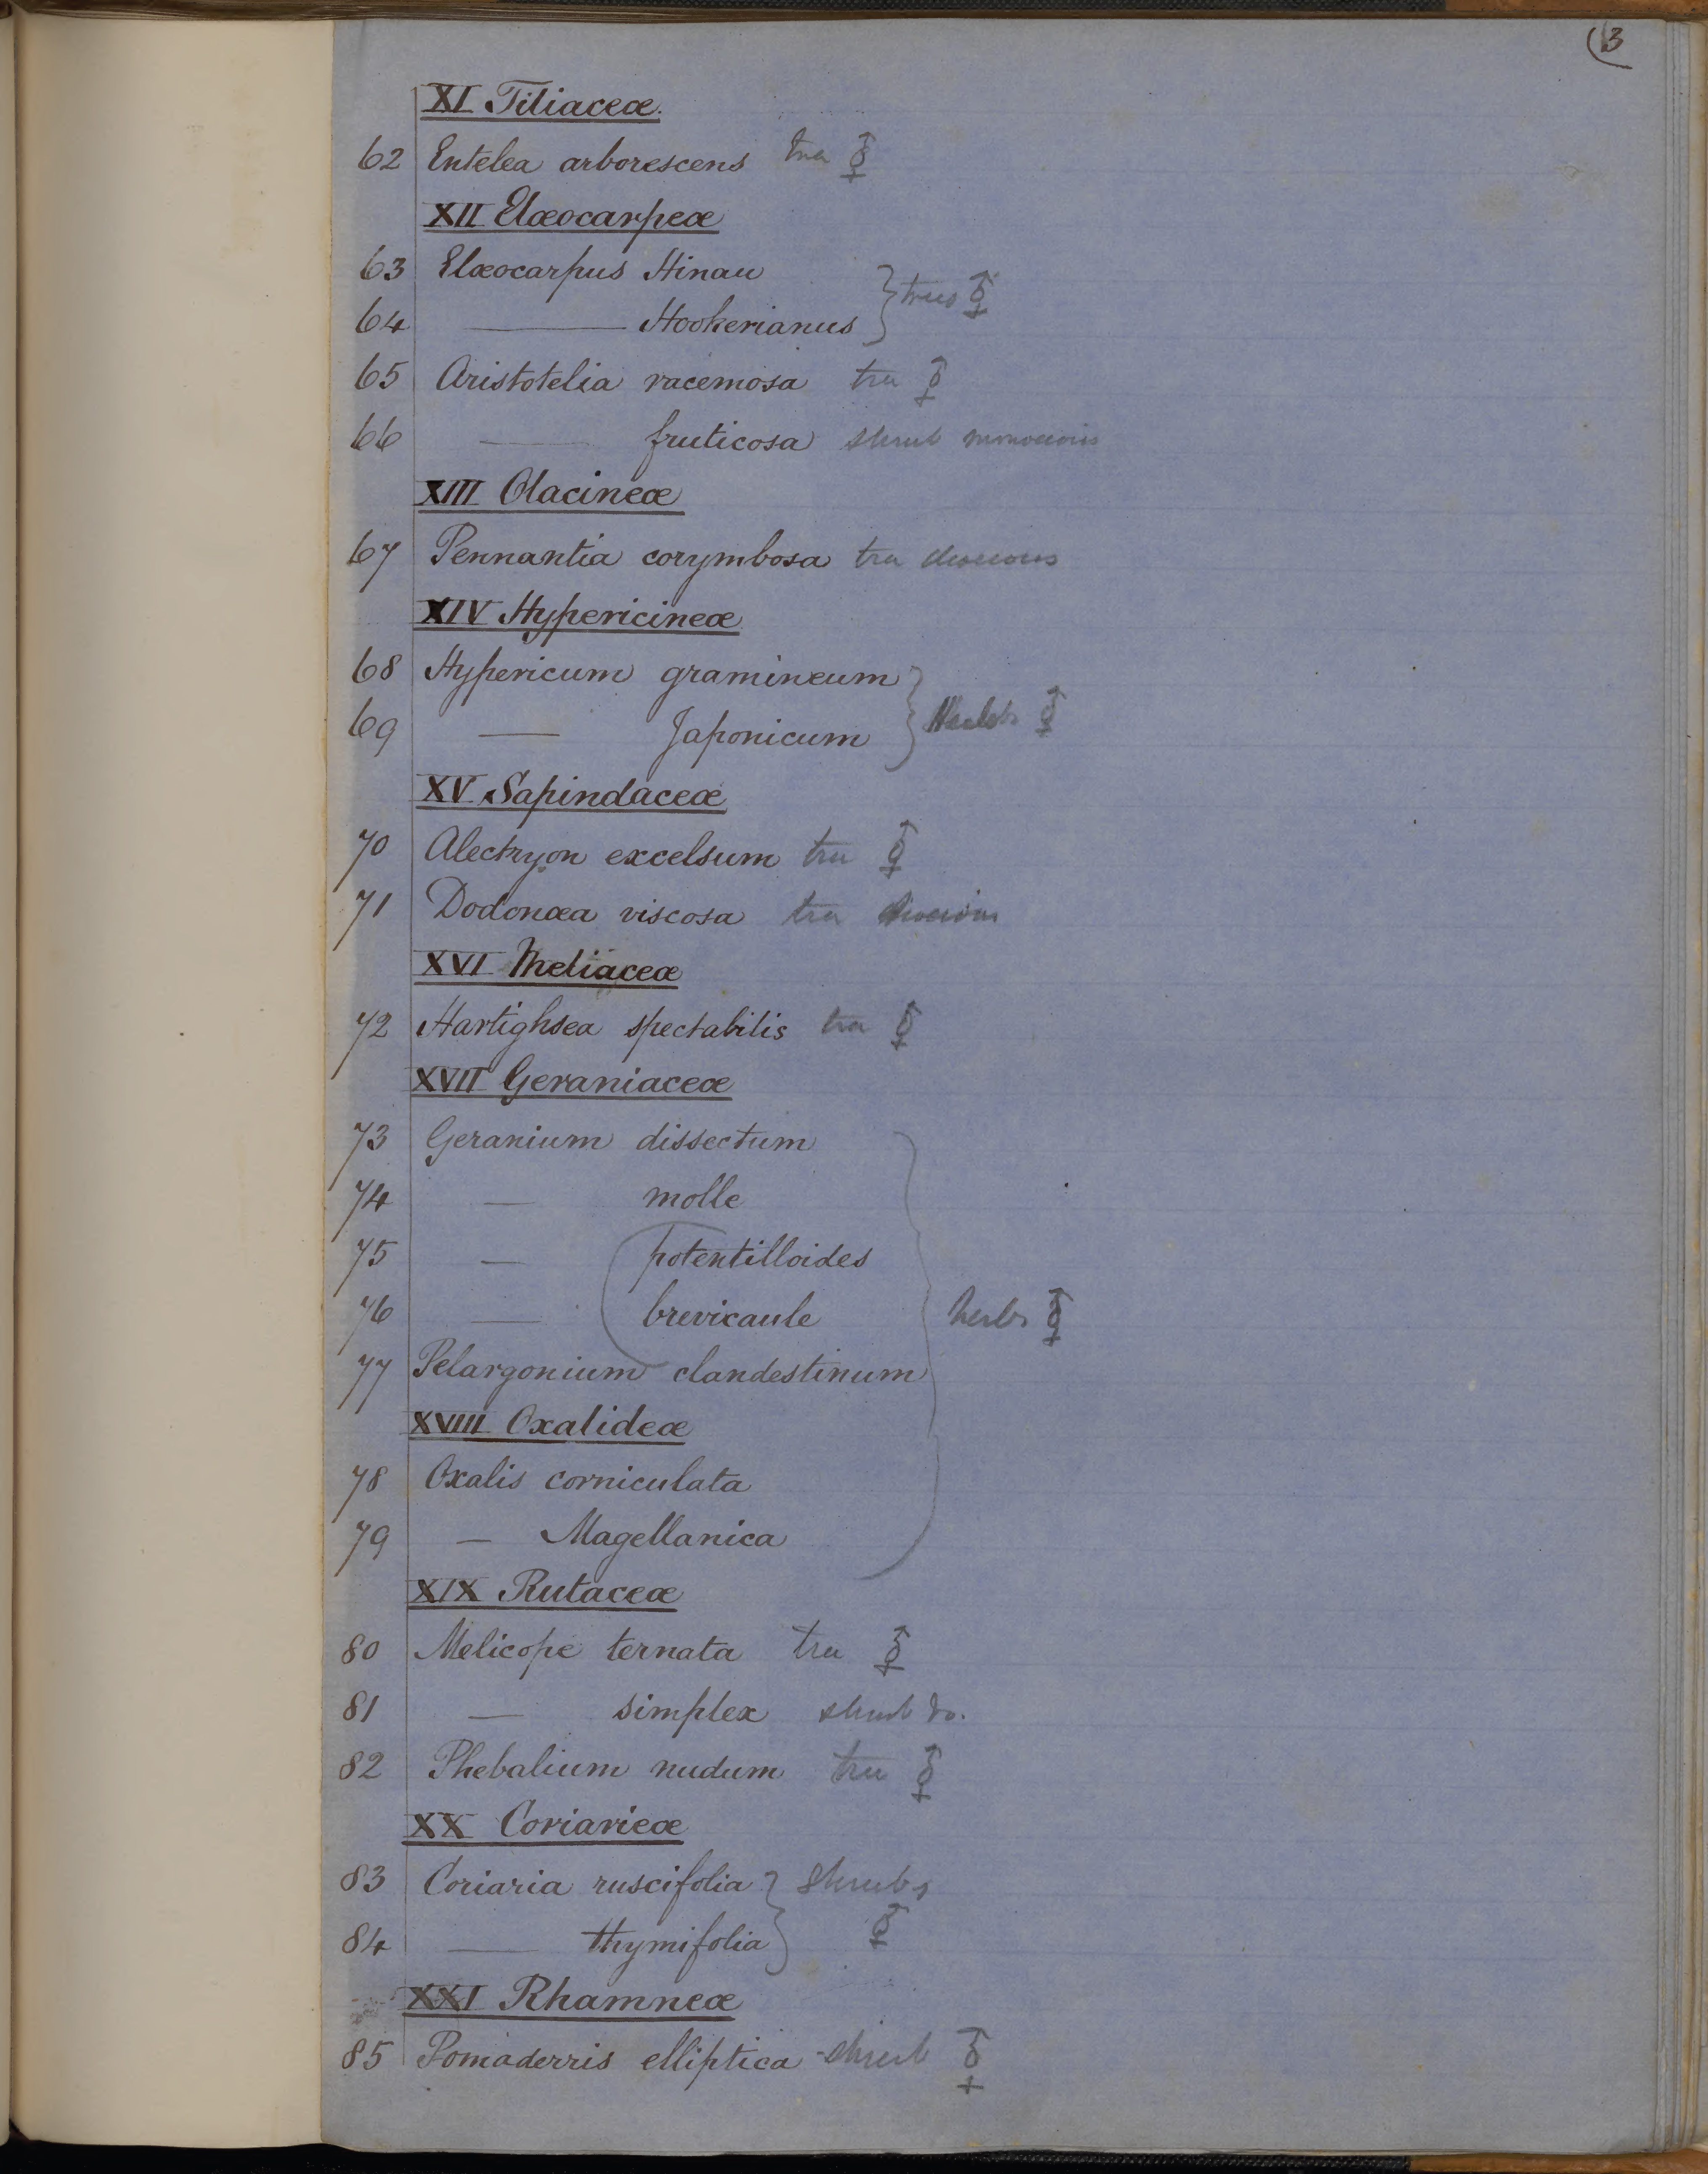 (3
XI Tiliaceæ.
62 Entelea arborescens tree ⚥
XII Elæocarpeæ
63 Elæocarpus Hinau
64 —— Hookerianus } trees ⚥
65 Aristotelia racemosa tree ⚥
66 —— fruticosa shrub monoecious
XIII Olacineæ
67 Pennantia corymbosa tree dioecious
XIV Hypericineæ
68 Hypericum gramineum
69 —— Japonicum } Herbs ⚥
XV Sapindaceæ
70 Alectryon excelsum tree ⚥
71 Dodonæa viscosa tree dioecious
XVI Meliaceæ
72 Hartighsea spectabilis tree ⚥
XVII Geraniaceæ
73 Geranium dissectum
74 — molle
75 — potentilloides
76 — brevicaule herbs ⚥
77 Pelargonium clandestinum
XVIII Oxalideæ
78 Oxalis corniculata
79 — Magellanica
XIX Rutaceæ
80 Melicope ternata tree ⚥
81 — simplex shrub do.
82 Phebalium nudum tree ⚥
XX Coriarieæ
83 Coriaria ruscifolia } shrubs
84 —— thymifolia } ⚥
XXI Rhamneæ
85 Pomaderris elliptica shrub ⚥